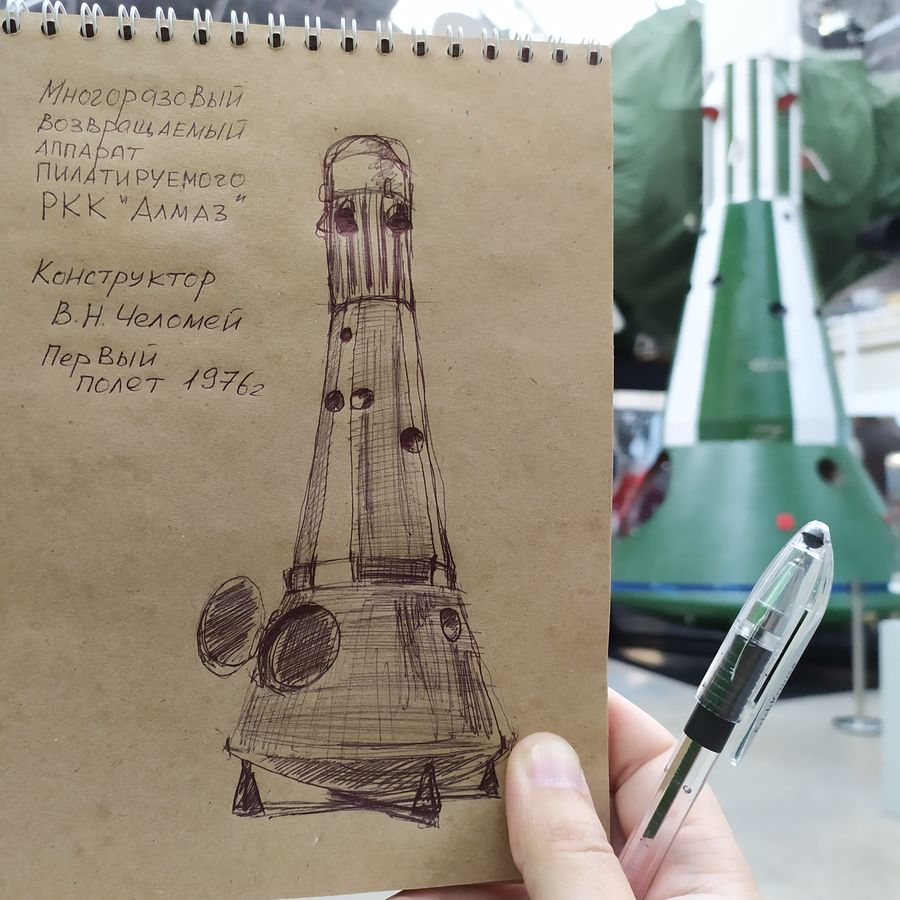 Многоразовый
возвращаемый
аппарат
пилатируемого
РКК "Алмаз"
Конструктор
В.Н. Челомей
Первый
полет 1976г